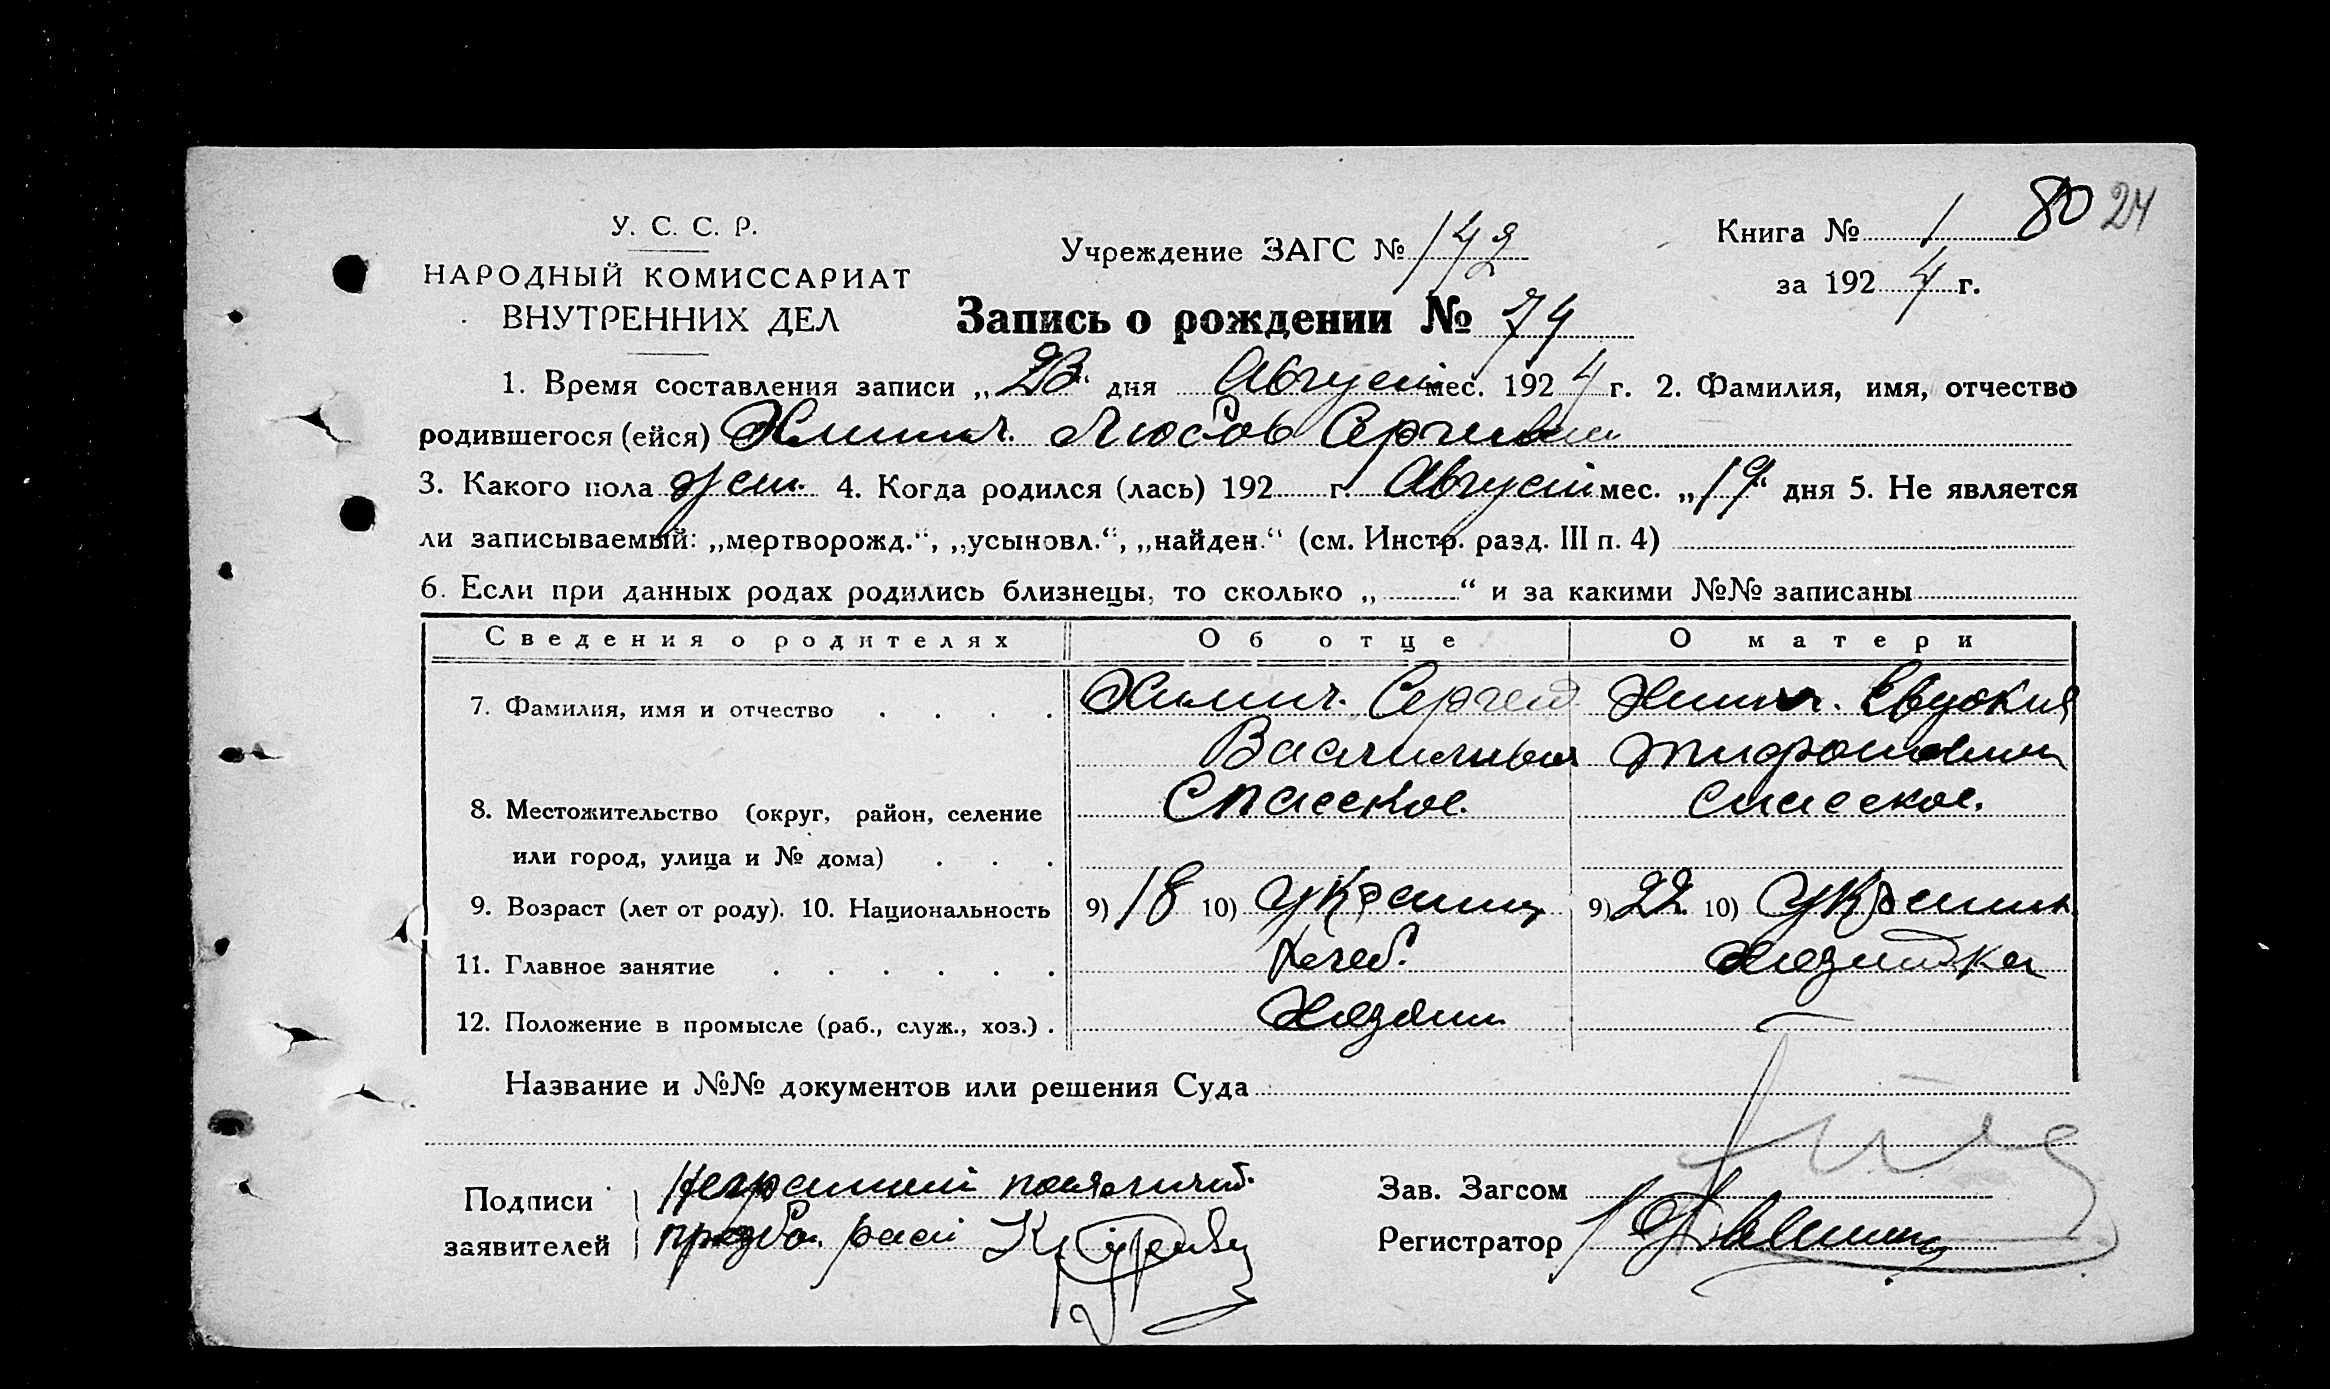 80 24
У. С. С. Р.
НАРОДНЫЙ КОМИССАРИАТ
ВНУТРЕННИХ ДЕЛ
Учреждение ЗАГС № 142
Книга № 1
за 1924 г.
Запись о рождении № 74
1. Время составления записи „23“ дня Август мес. 1924 г. 2. Фамилия, имя, отчество
родившегося (ейся) Химич. Любовь Сергеевн
3. Какого пола жен. 4. Когда родился (лась) 192 г. Август мес. „19“ дня 5. Не является
ли записываемый: „мертворожд.“, „усыновл.“, „найден.“ (см. Инстр. разд. III п. 4)
6. Если при данных родах родились близнецы, то сколько „ “ и за какими №№ записаны
Сведения о родителях Об отце О матери
7. Фамилия, имя и отчество Химич. Сергей Химич. Евдокия
8. Местожительство (округ, район, селение Спасское. Спасское.
или город, улица и № дома)
9. Возраст (лет от роду). 10. Национальность 9) 18 10) Украинц 9) 22 10) Украинк
11. Главное занятие Хлеб. Хозяйка
12. Положение в промысле (раб., служ., хоз.) Хозяин —
Название и №№ документов или решения Суда
Подписи Неграмотный
заявителей
Зав. Загсом
Регистратор